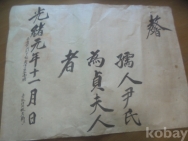 孺人尹氏
為貞夫人
者
光緖元年十一月 日
kobay